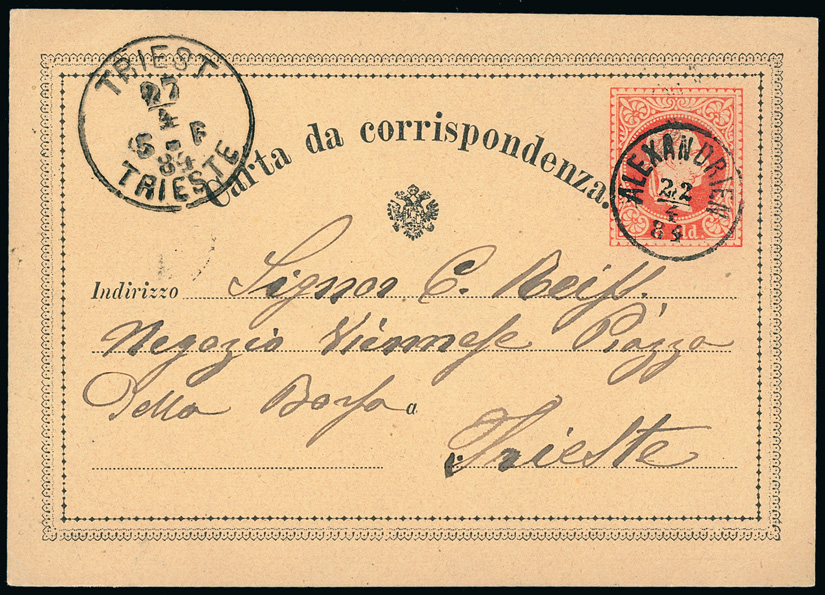 TRIEST
27
4
6 F
84
TRIESTE
Carta da corrispondenza.
ALEXANDRIEN
22
4
84
ld.
Indirizzo Signor C. Reiſs.
Negozio Viennese Piazza
Della Borsa a
Trieste